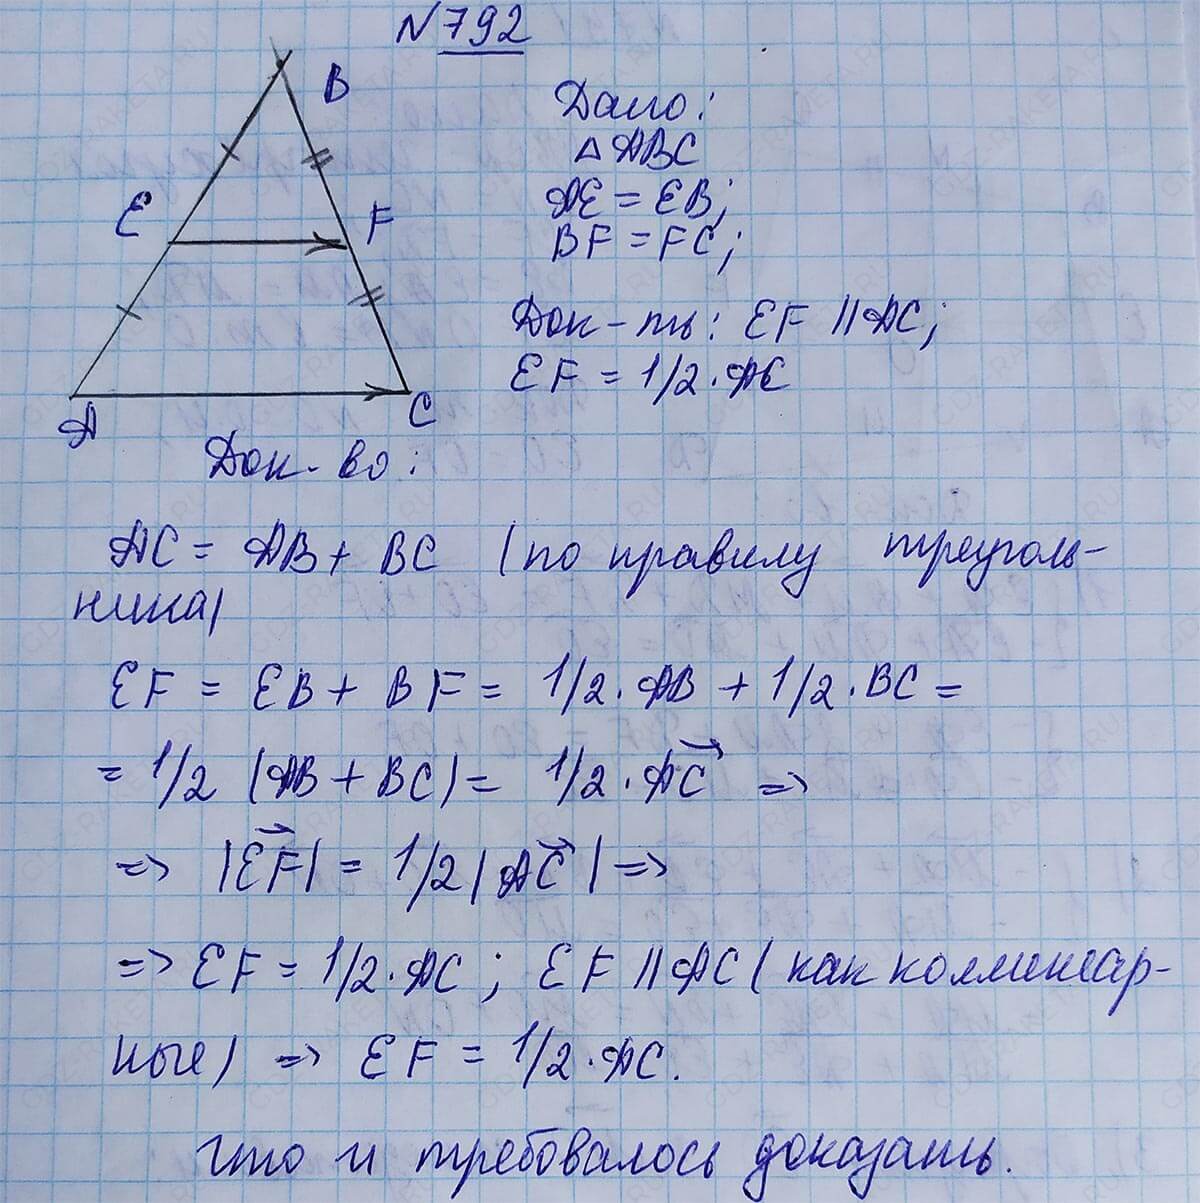 N 792
B
E
F
A
C
Дано:
△ ABC
AE = EB;
BF = FC;
Док-ть: EF || AC;
EF = 1/2 · AC
Док-во:
AC = AB + BC (по правилу треуголь-
ника)
EF = EB + BF = 1/2 · AB + 1/2 · BC =
= 1/2 (AB + BC) = 1/2 · A͞C⃗ =>
=> |EF⃗| = 1/2 |AC⃗| =>
=> EF = 1/2 · AC; EF || AC (как коллинеар-
ные) => EF = 1/2 · AC.
Что и требовалось доказать.